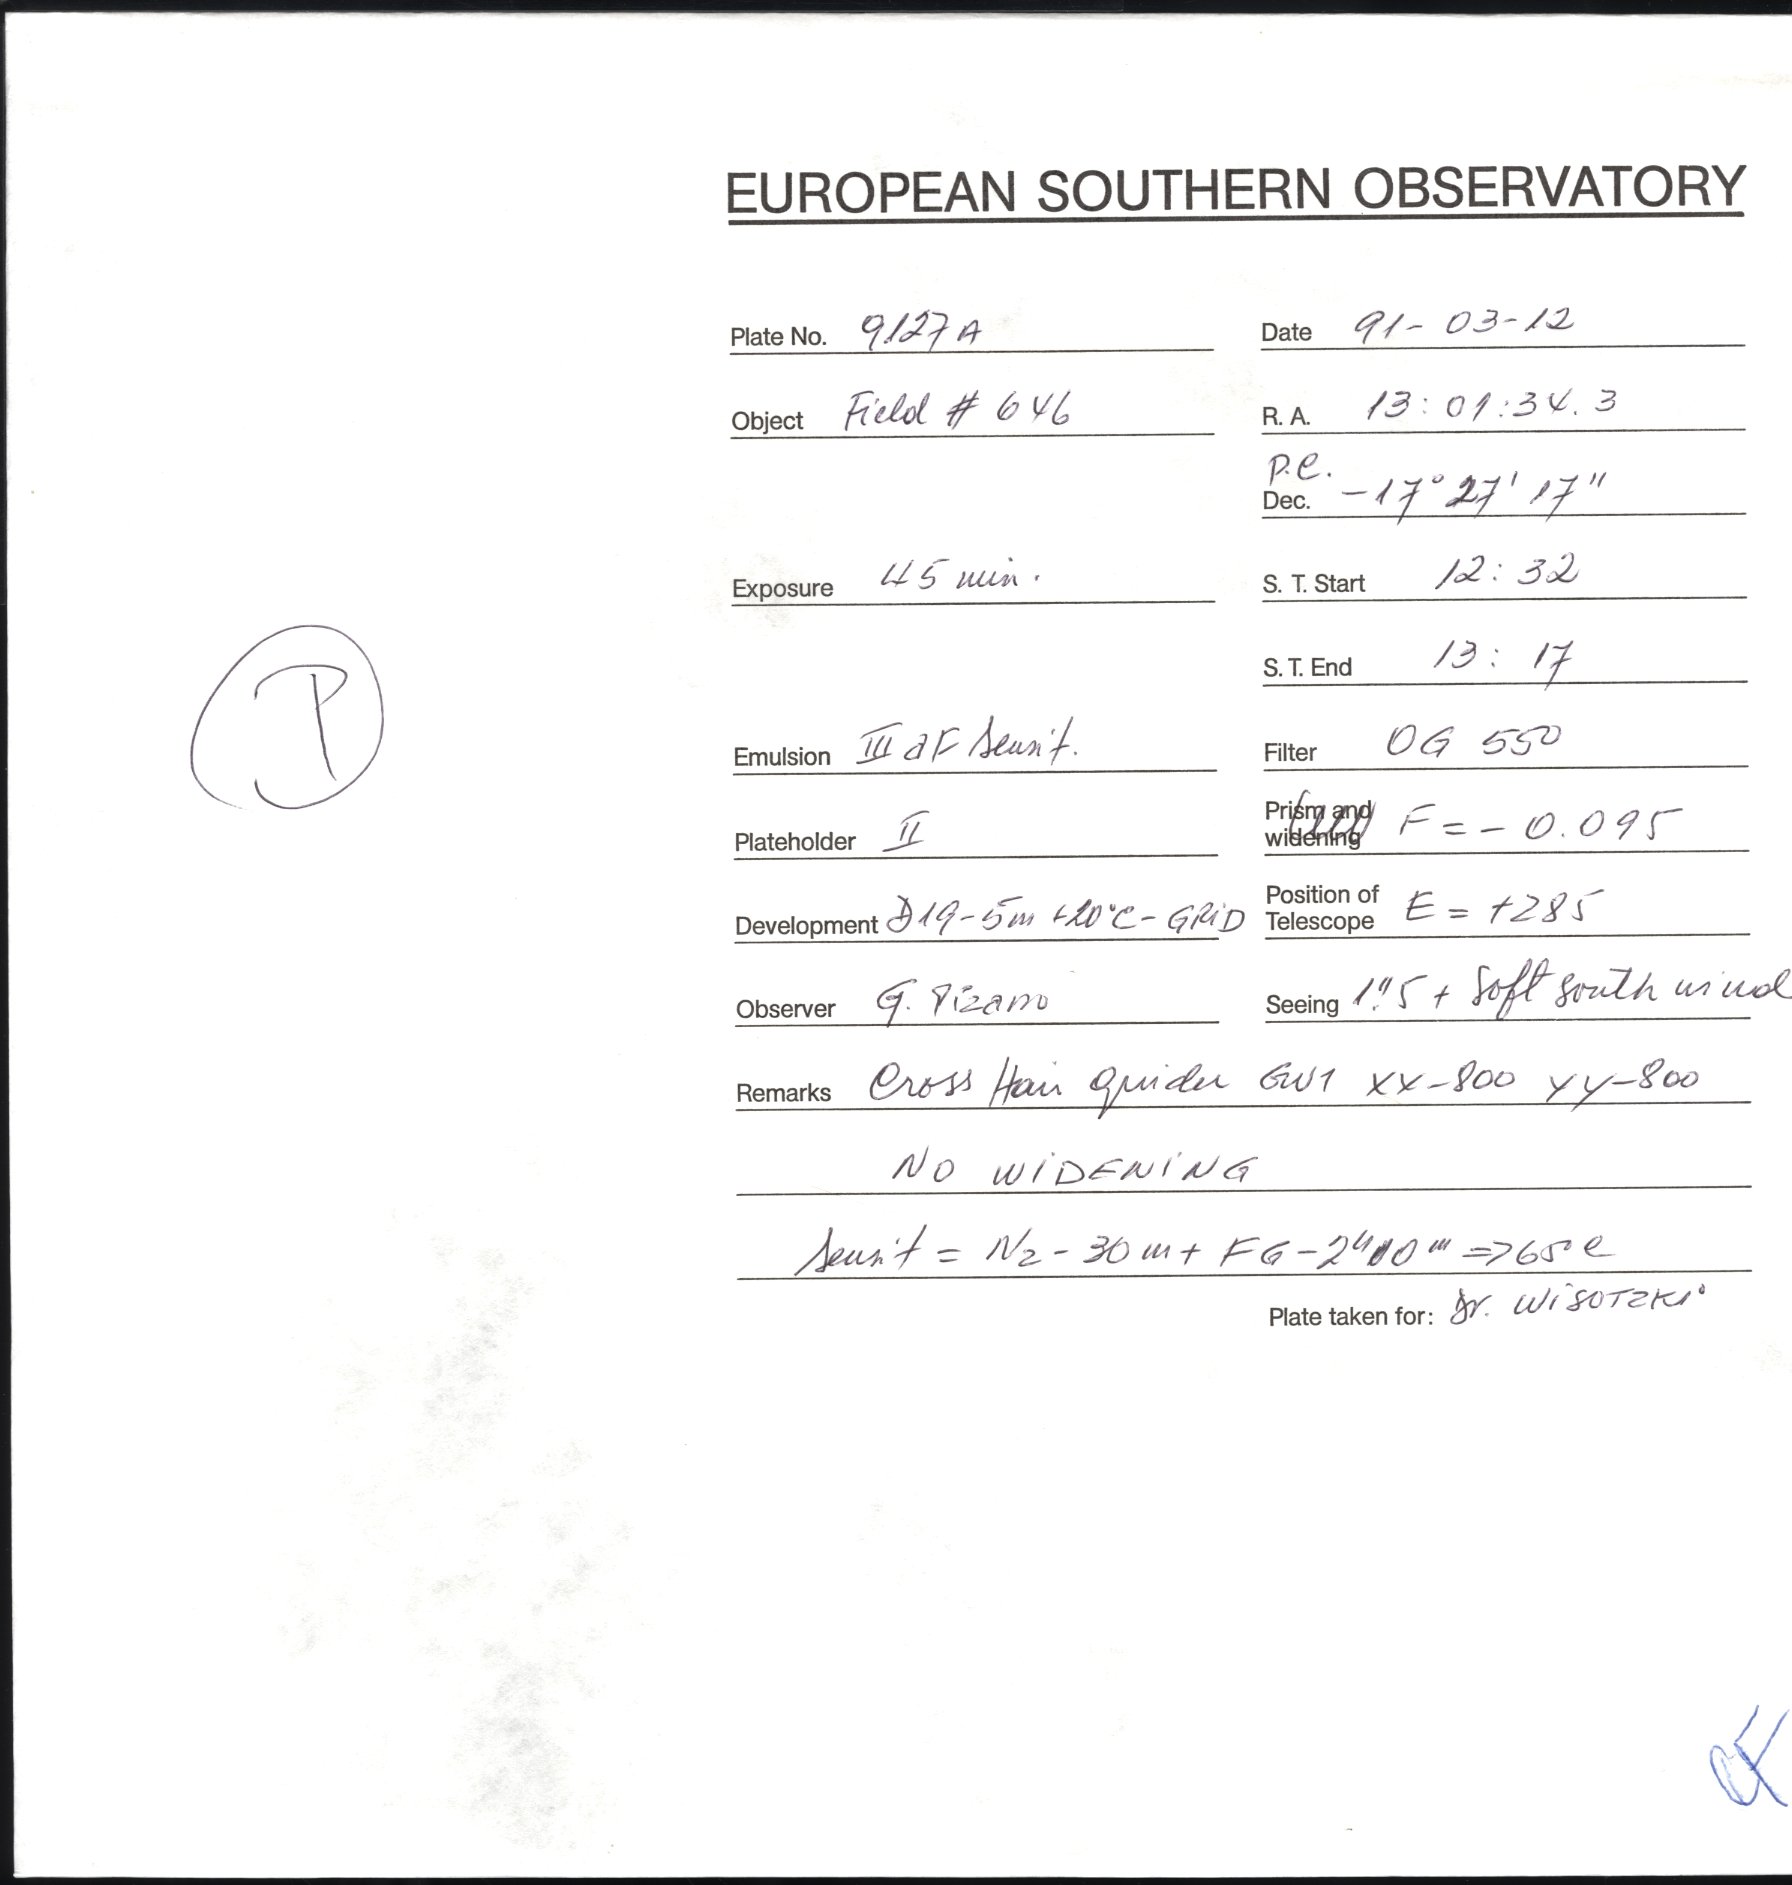 EUROPEAN SOUTHERN OBSERVATORY
Plate No. 9127A Date 91-03-12
Object Field # 646 R. A. 13:01:34.3
P.C.
Dec. -17° 27' 17"
Exposure 45 min. S. T. Start 12:32
S. T. End 13:17
P
Emulsion III aF Sensit. Filter OG 550
Plateholder II Prism and widening F = - 0.095
Development D19-5m +20°C- GRID Position of Telescope E = +285
Observer G. Pizarro Seeing 1".5 + Soft south wind
Remarks Cross Hair guider GW1 XX-800 YY-800
NO WIDENING
Sensit = N2 - 30 m + FG - 2h 10m => 65°C
Plate taken for: Dr. WISOTZKI